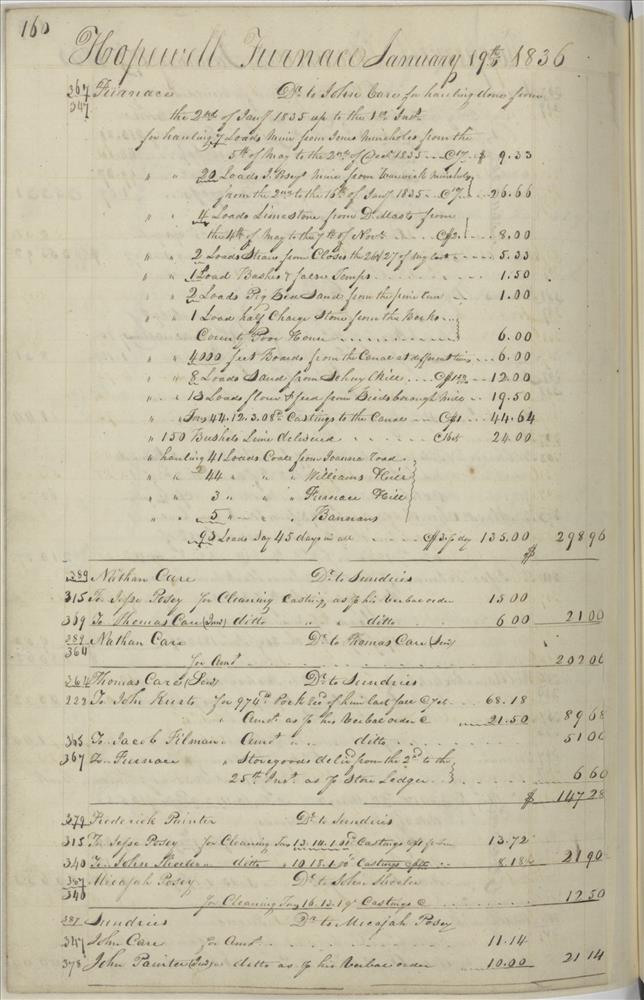 160
Hopewell Furnace January 19th 1836
367 Furnace Dr. to John Care for hauling done from
347 the 2nd of Jany 1835 up to the 1st Inst.
for hauling 7 Loads Mine from Jones Mineholes from the
5th of May to the 2nd of Octr 1835 $ 9.33
" " 20 Loads J. Posey Mine from Warwick Mineholes
from the 2nd to the 16th of Jany 1835 26.66
" " 4 Loads Limestone from D. Masts from
the 4th of May to the 7th of Novr @ $2. 8.00
" " 2 Loads Straw from Closes the 26 & 27 of Aug last 5.33
" " 1 Load Bashes & false Temps 1.50
" " 2 Loads Pig Bed Sand from the 1.00
" " 1 Load half Charge Stone from the Berks
County Poor House 6.00
" " 4000 feet Boards from the Canal at different times 6.00
" " 8 Loads Sand from Schuylkill 12.00
" " 13 Loads flour & feed from Birdsborough Mill 19.50
" " Tons 44.12.3.08 lb Castings to the Canal @ $1 44.64
" 150 Bushels Lime delivered @ 16 cts 24.00
" hauling 41 Loads Coal from Joanna Road
" " 44 " " " Williams Hill
" " 3 " " " Furnace Hill
" " 5 " " " Bannans
93 Loads Say 45 days in all @ $3 p day 135.00 $ 298 96
389 Nathan Care Dr. to Sundries
315 To Jesse Posey for Cleaning Castings as p his Verbal order 15.00
369 To Thomas Care (Junr) ditto " " ditto 6 00 21 00
389 Nathan Care Dr. to Thomas Care (Senr)
364 for Amt. 202 06
364 Thomas Care (Senr) Dr. to Sundries
222 To John Kurtz for 974 lb Pork recd of him last fall @ 7 cts 68.18
" Amt. as p his Verbal order @ 21.50 89 68
345 To Jacob Filman " Amt " " ditto 51 00
367 To Furnace " Storegoods deld from the 2nd to the
25th Inst. as p Store Ledger 6 60
$ 147 28
379 Frederick Painter Dr. to Sundries
315 To Jesse Posey for Cleaning Tons 13.14.1 Castings 13.72
340 To John Sheeler " ditto " 10.18.1 Castings 8.18 21 90
387 Micajah Posey Dr. to John Sheeler
340 for Cleaning Tons 16.13.19 Castings @ 12 50
387 Sundries Dr. to Micajah Posey
347 John Care for Amt. 11.14
378 John Painter (Junr) " ditto as p his Verbal order 10.00 21 14